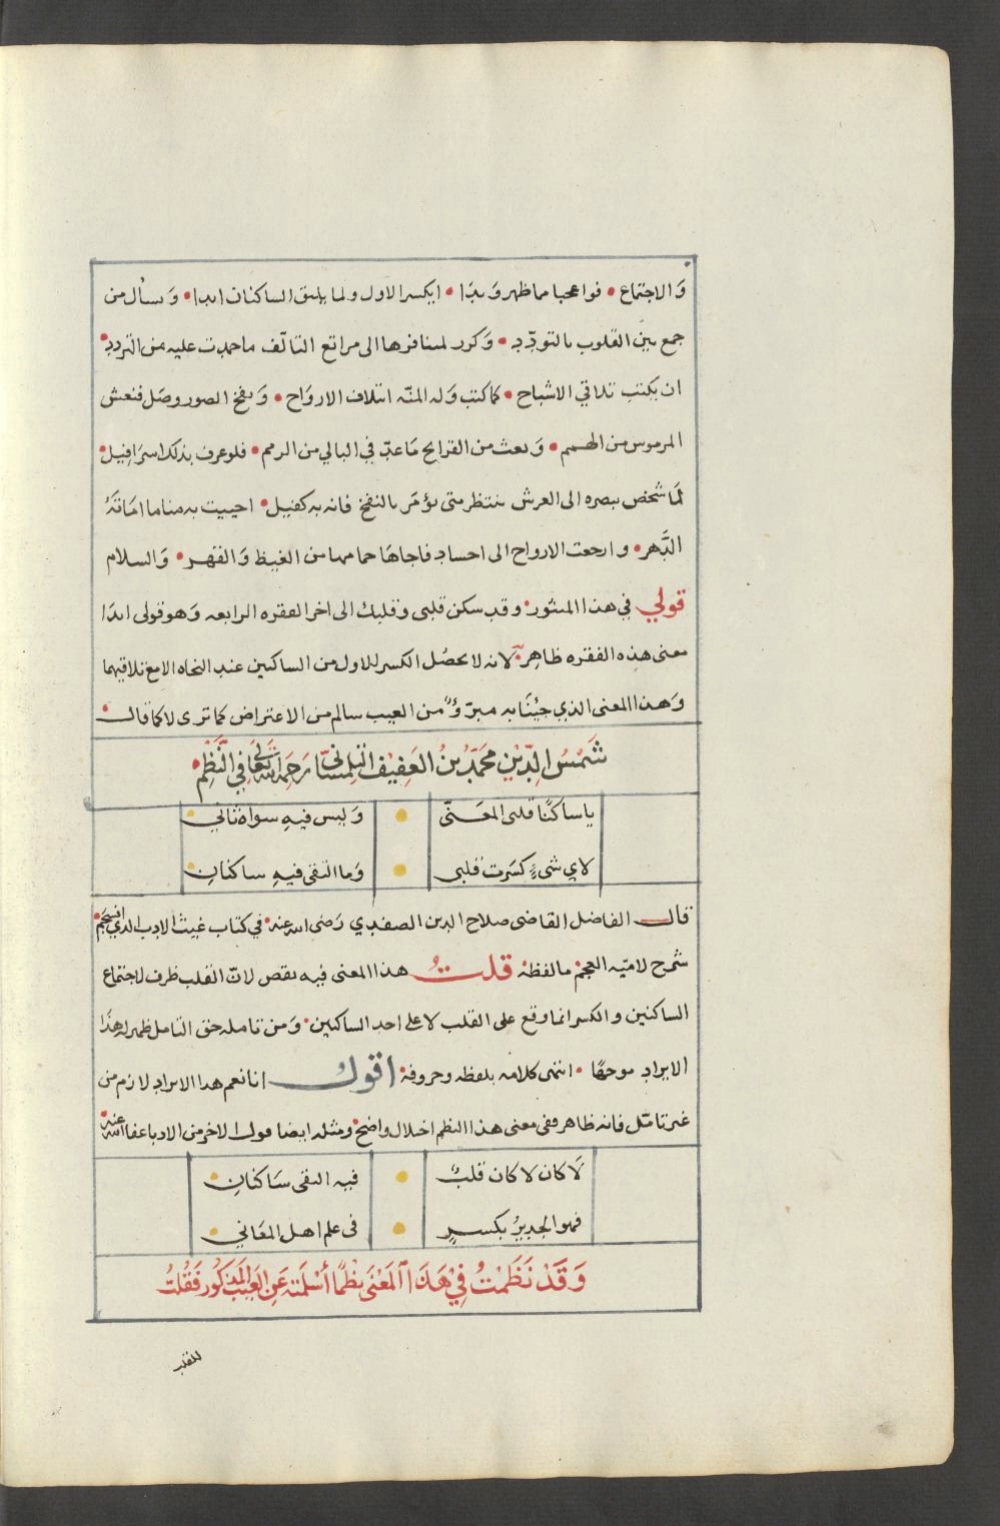 والاجتماع • فواعجبا مما ظهر وبدا • ايكسر الاول ولما يلتق الساكنان ابدا • ونسأل من
جمع بين القلوب بالتودد • وكرر لمنافرها الى مراتع التالف ما حمدت عليه من التردد •
ان يكتب تلاقي الاشباح • كما كتب وله المنّه ائتلاف الارواح • ونفخ الصور وصل فنعش
المرموس من الهمم • وبعث من القرايح ما عدّ في البالي من الرمم • فلو عرف بذلك اسرافيل •
لما شخص ببصره الى العرش ينتظر متى يؤمر بالنفخ فانه به كفيل • احييت به منا ما اماته
الدهر • وارجعت الارواح الى اجساد فاجاها حمامها من الغيظ والقهر • والسلام
قولي في هذا المنثور • وقد سكن قلبي وقلبك الى اخر الفقره الرابعه وهو قولى ابدا
معنى هذه الفقره ظاهر • لانه لا يحصل الكسر للاول من الساكنين عند النحاه الا مع تلاقيهما
وهذا المعنى الذي جيْنَا به مبرّؤٌ من العيب سالم من الاعتراض كما ترى لا كما قال •
شَمْسُ الدِّيْنِ مُحَمَّدُ بْنُ العَفِيْفِ التِّلِمْسَانِيّ رَحِمَهُ اللهُ تَعَالَى فِي النَّظْمِ •
يا ساكنًا قلبى المعَنّى • وليس فيهِ سواه ثاني •
لاي شىءٍ كسَرت قلبى • وما التقى فيهِ ساكنانِ •
قال الفاضل القاضى صلاح الدين الصفدي رضى الله عنه • في كتاب غيث الادب الذي انسجم •
شرح لاميّه العجم • ما لفظه قلتُ هذا المعنى فيه نقص لانّ القلب ظرف لاجتماع
الساكنين والكسر انما وقع على القلب لا على احد الساكنين • ومن تامله حق التامل ظهر له هذا
الايراد موجهًا • انتهى كلامه بلفظه وحروفه • اقول انا نعم هذا الايراد لازم من
غير تامّل فانه ظاهر ففى معنى هذا النظم اخلال واضح • ومثله ايضا قول الاخر من الادبا عفا الله عنه •
لَا كان لا كان قلبٌ • فيه التقى سَاكنانِ •
فهو الجديرُ بكسرٍ • فى علم اهل المعَاني •
وَقَدْ نَظَمْتُ فِيْ هَذَا المَعْنَى نظْمًا أَسْلَمْتهُ عَنِ العَيْبِ المَذْكُور فَقُلتُ
للقلب